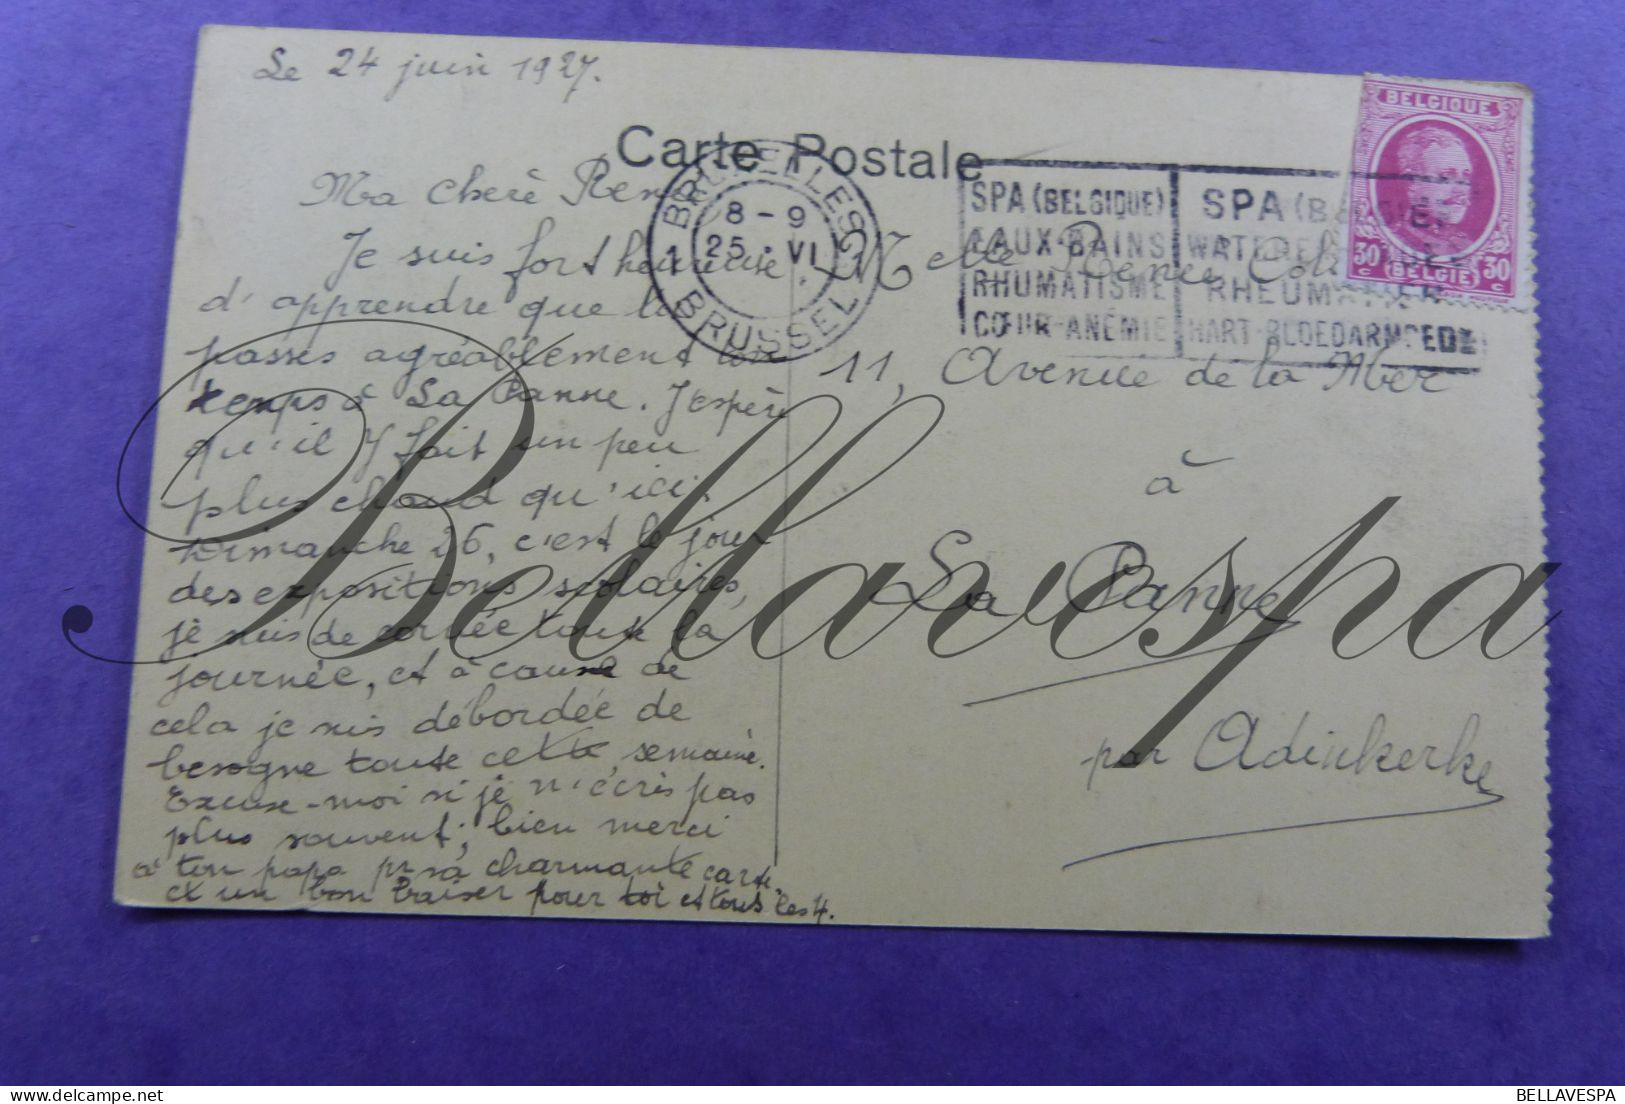 Le 24 juin 1927.
Carte Postale
Ma chère
Je suis fort heureuse
d'apprendre que tu
passes agréablement ton
temps à La Panne. J'espère
qu'il y fait un peu
plus chaud qu'ici.
Dimanche 26, c'est le jour
des expositions scolaires,
je suis de corvée toute la
journée, et à cause de
cela je suis débordée de
besogne toute cette semaine.
Excuse-moi si je n'écris pas
plus souvent; bien merci
à ton papa pr sa charmante carte
et un bon baiser pour toi et tous les 4.
BRUXELLES
8-9
25 VI
1 BRUSSEL 1
SPA (BELGIQUE)
EAUX-BAINS
RHUMATISME
CŒUR-ANÉMIE
SPA
HART-BLOEDARMOEDE
BELGIQUE
30 c BELGIË 30 c
Melle Renée
11, Avenue de la Mer
à
La Panne
par Adinkerke
Bellavespa
BELLAVESPA